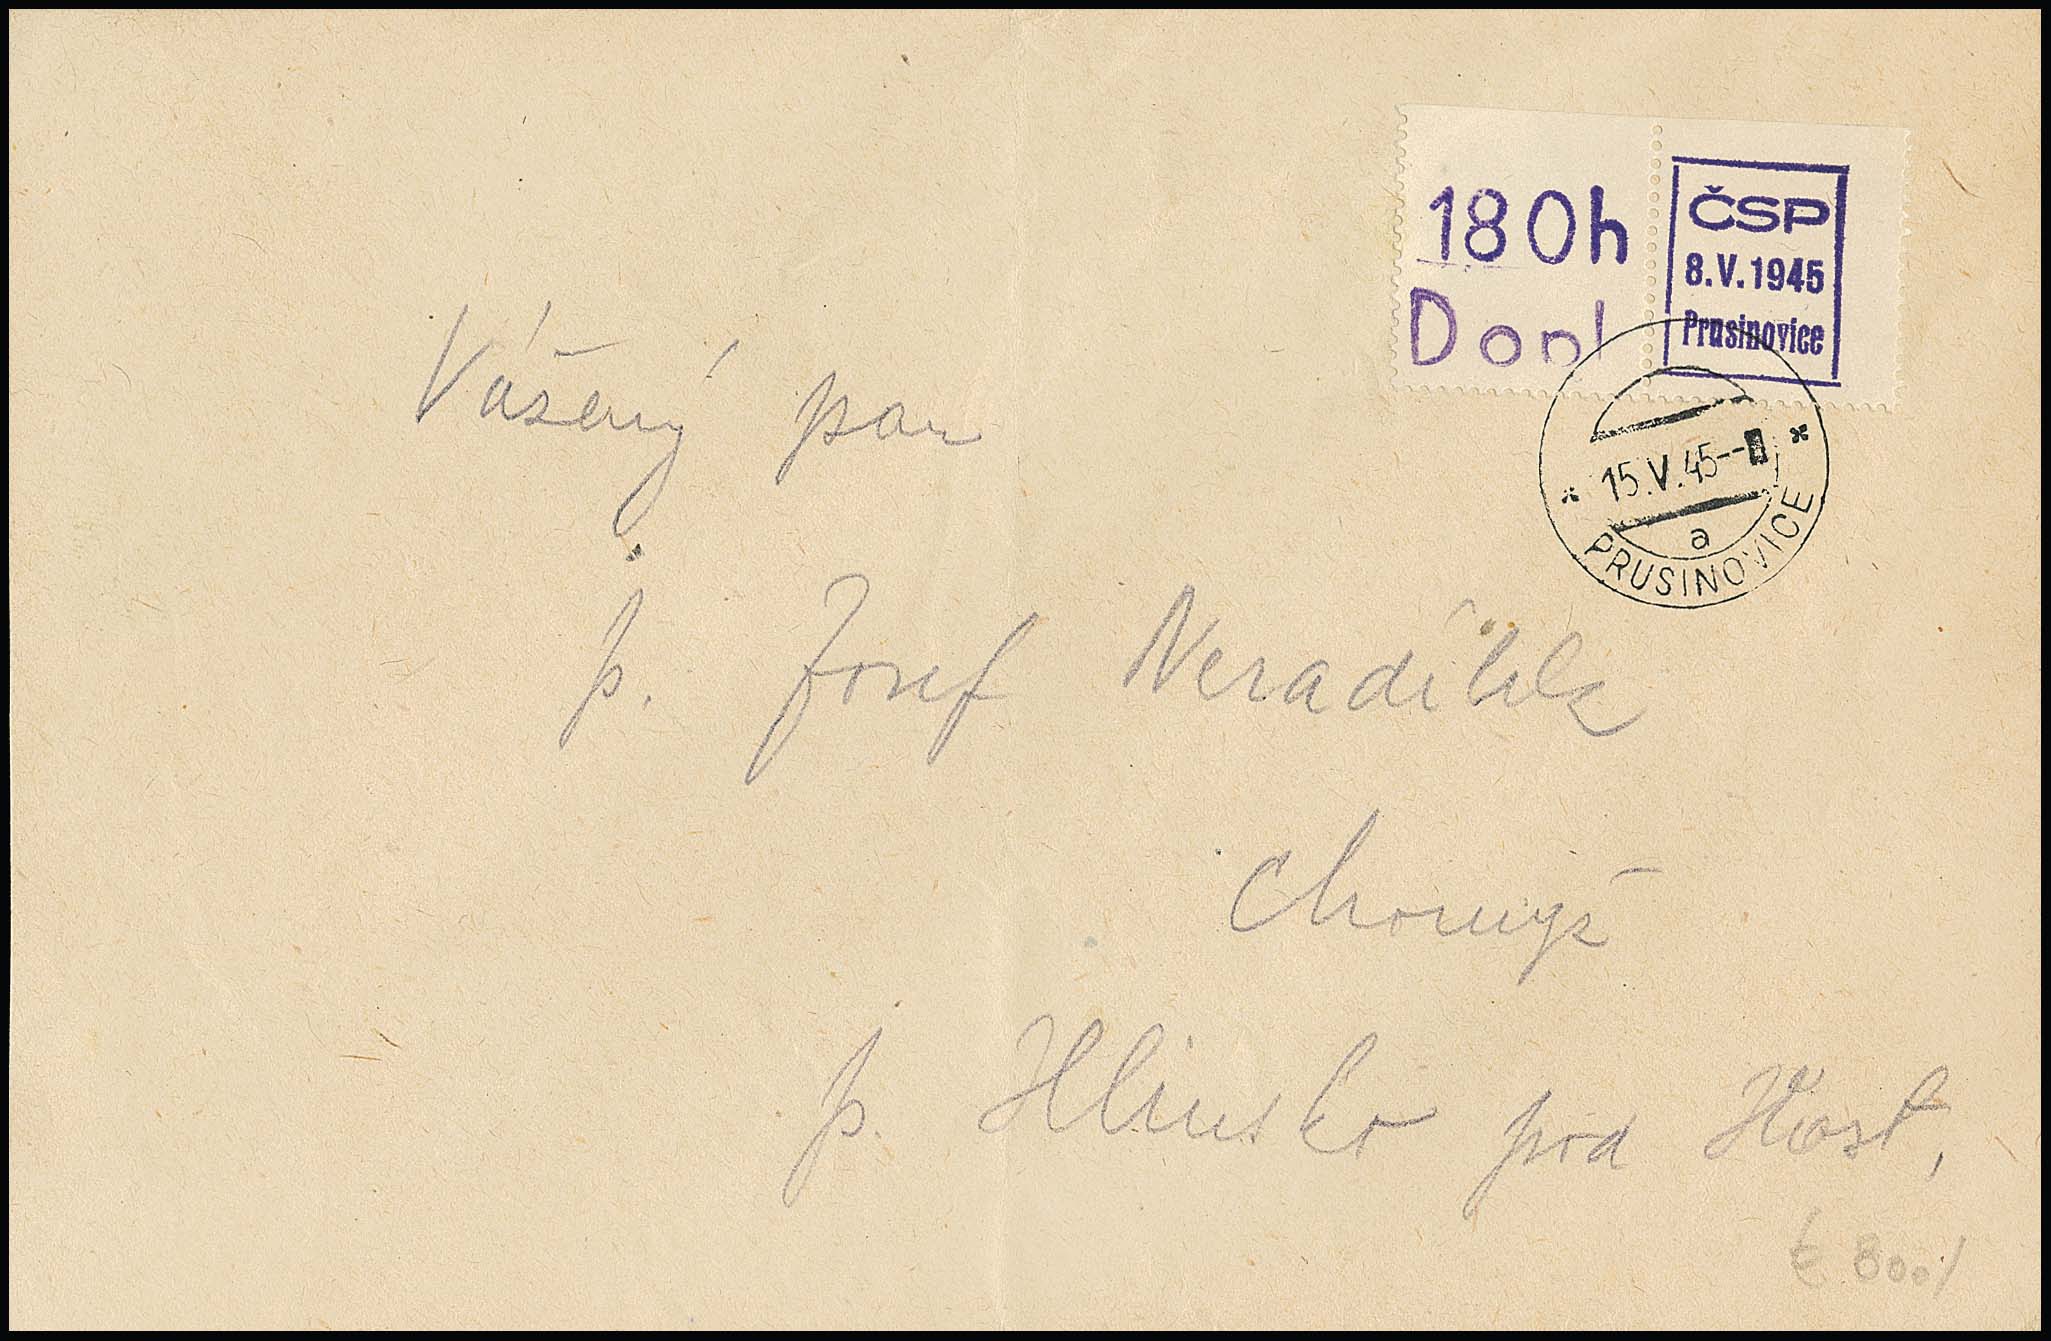 180h
Dopl
ČSP
8.V.1945
Prusinovice
15.V.45
a
PRUSINOVICE
Vážený pan
p. Josef Neradílek
Chomýž
p. Hlinsko pod Host,